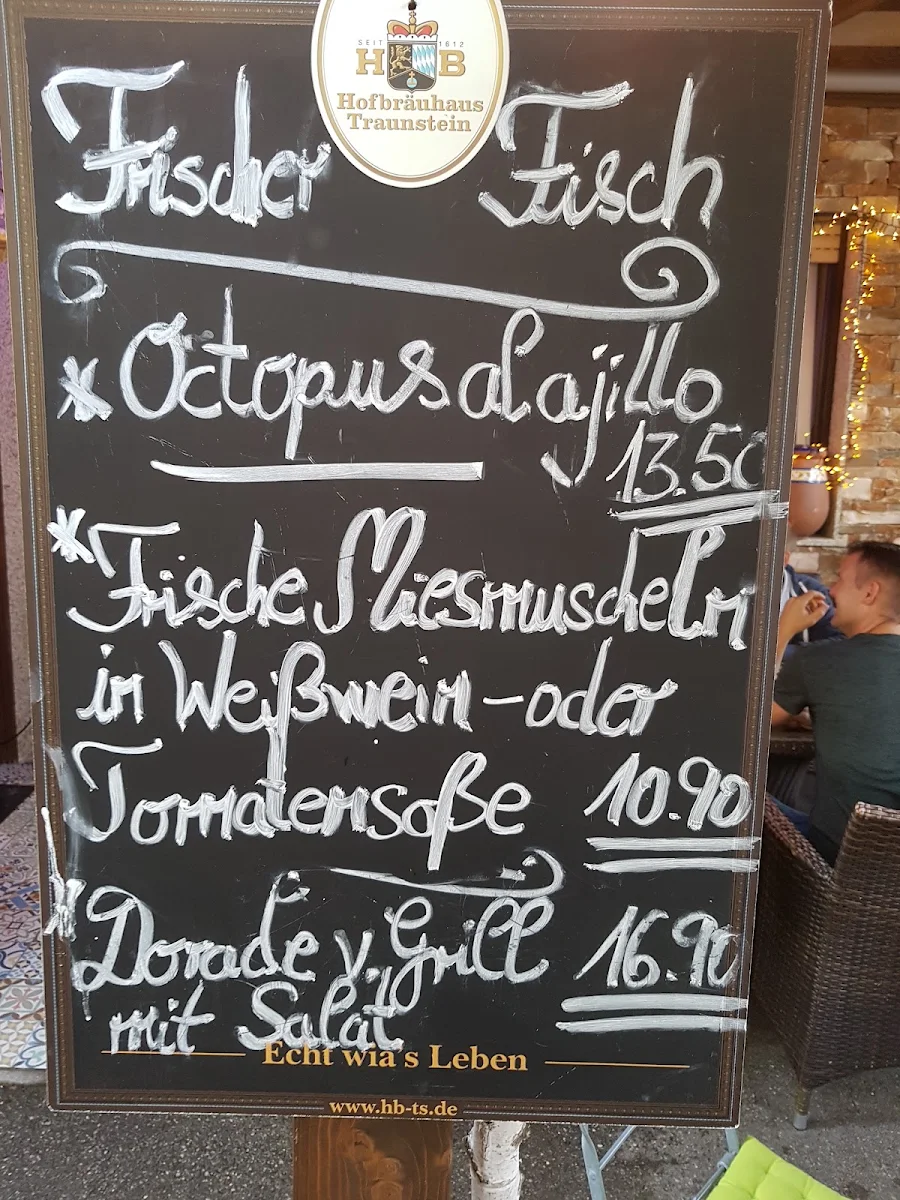 SEIT 1612
HB
Hofbräuhaus
Traunstein
Frischer Fisch
* Octopus al ajillo
13.50
* Frische Miesmuscheln
in Weißwein - oder
Tomatensoße 10.90
* Dorade v. Grill 16.90
mit Salat
Echt wia's Leben
www.hb-ts.de